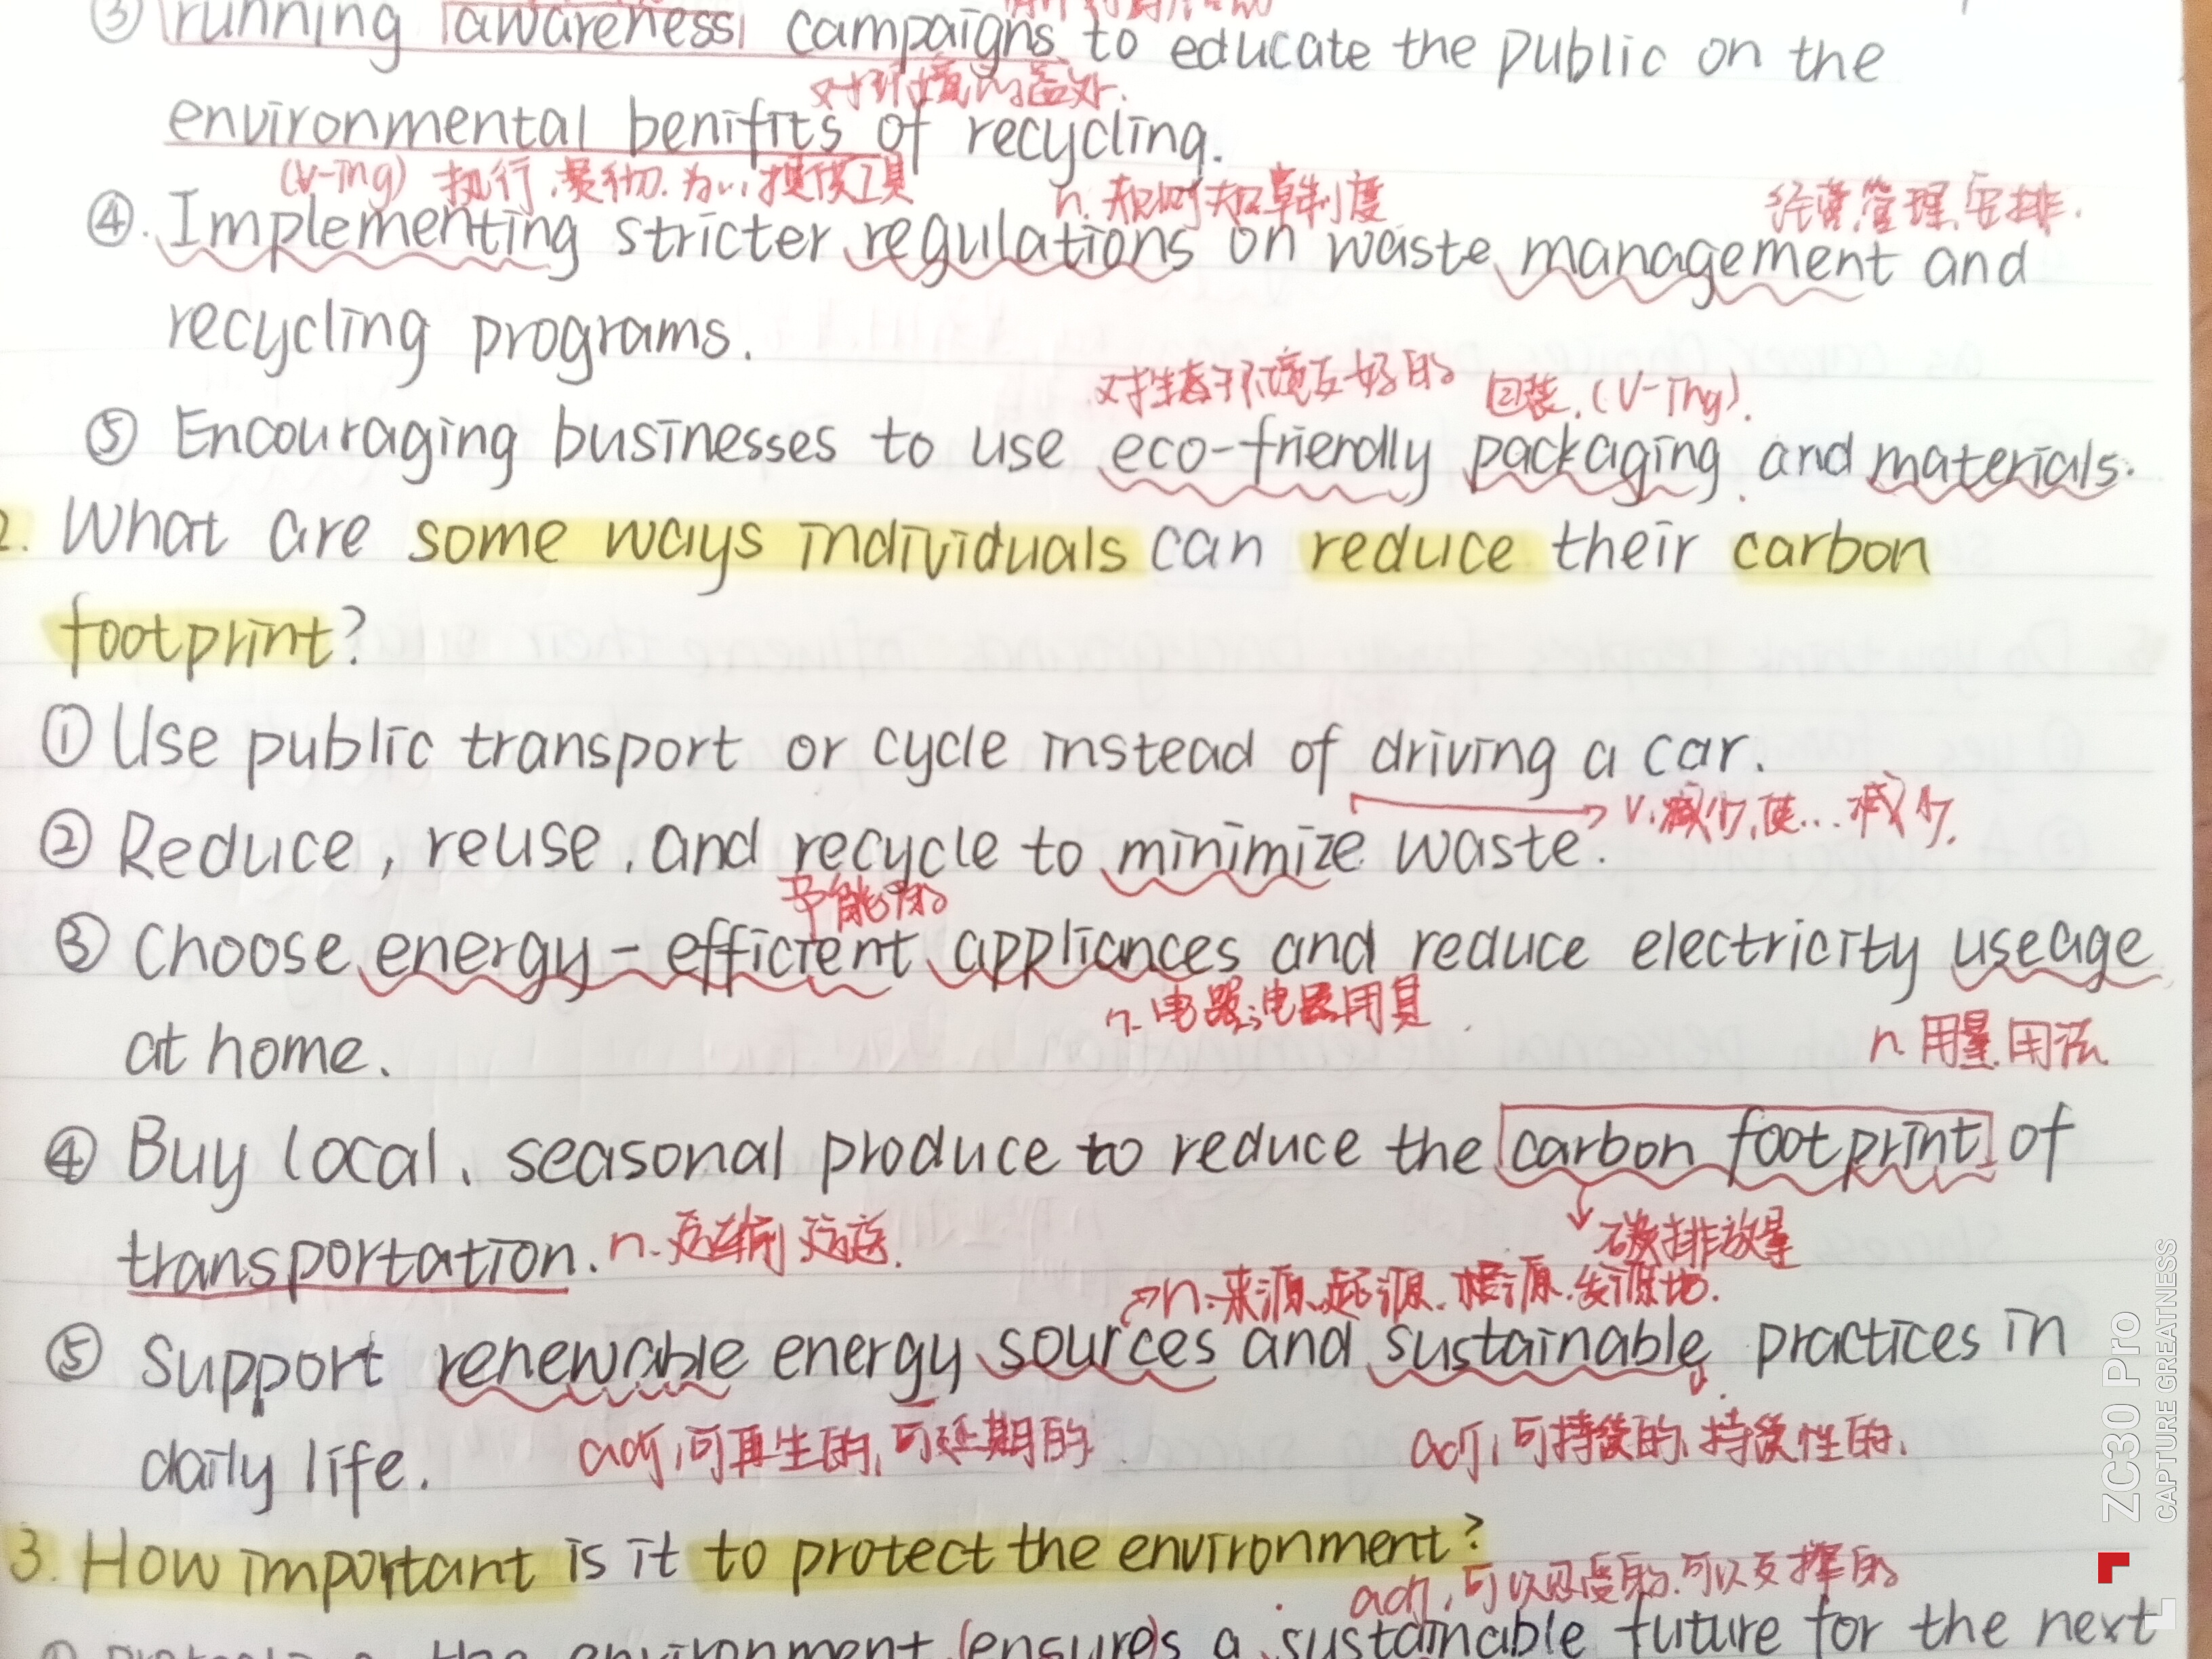 ③ running awareness campaigns to educate the public on the
对环境的益处.
environmental benifits of recycling.
(V-ing) 执行.贯彻.为...提供工具
n.规则规章制度
经营,管理,安排.
④. Implementing stricter regulations on waste management and
recycling programs.
对生态环境友好的 包装.(V-ing).
⑤ Encouraging businesses to use eco-friendly packaging and materials.
2. What are some ways individuals can reduce their carbon
footprint?
① Use public transport or cycle instead of driving a car.
v.减少,使...减少.
② Reduce, reuse, and recycle to minimize waste.
节能的
③ Choose energy-efficient appliances and reduce electricity useage
n.电器;电器用具
n.用量.用法
at home.
④ Buy local, seasonal produce to reduce the carbon footprint of
碳排放量
transportation. n.运输,运送.
n.来源.起源.根源.发源地.
⑤ Support renewable energy sources and sustainable practices in
adj,可再生的,可延期的
adj,可持续的.持续性的.
daily life.
3. How important is it to protect the environment?
adj,可以忍受的.可以支撑的
the environment (ensures) a sustainable future for the next
ZC30 Pro
CAPTURE GREATNESS